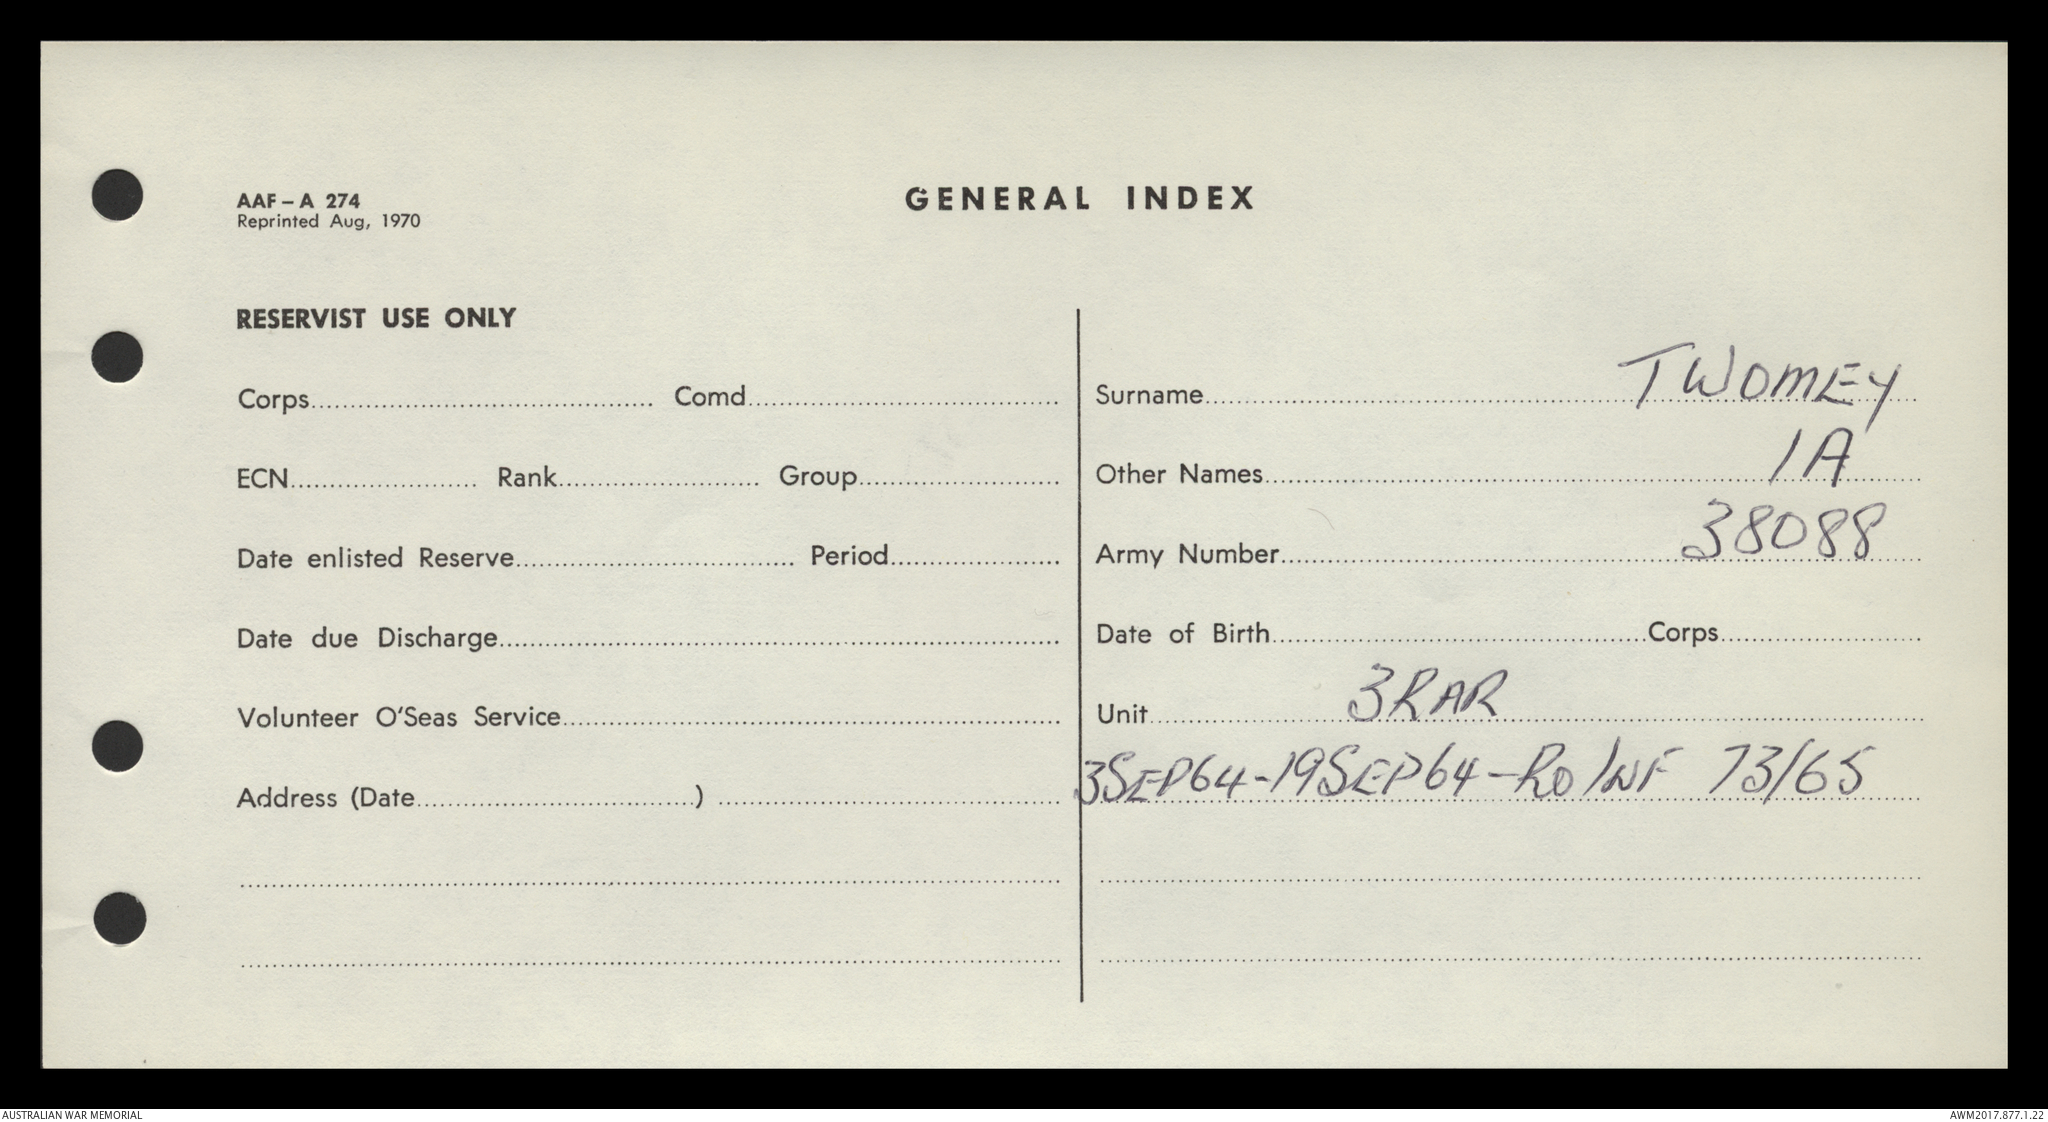 AAF – A 274
Reprinted Aug, 1970
GENERAL INDEX
RESERVIST USE ONLY
Corps
Comd
ECN
Rank
Group
Date enlisted Reserve
Period
Date due Discharge
Volunteer O'Seas Service
Address (Date )
Surname TWOMEY
Other Names IA
Army Number 38088
Date of Birth
Corps
Unit 3RAR
3SEP64-19SEP64-RO INF 73/65
AUSTRALIAN WAR MEMORIAL
AWM2017.877.1.22